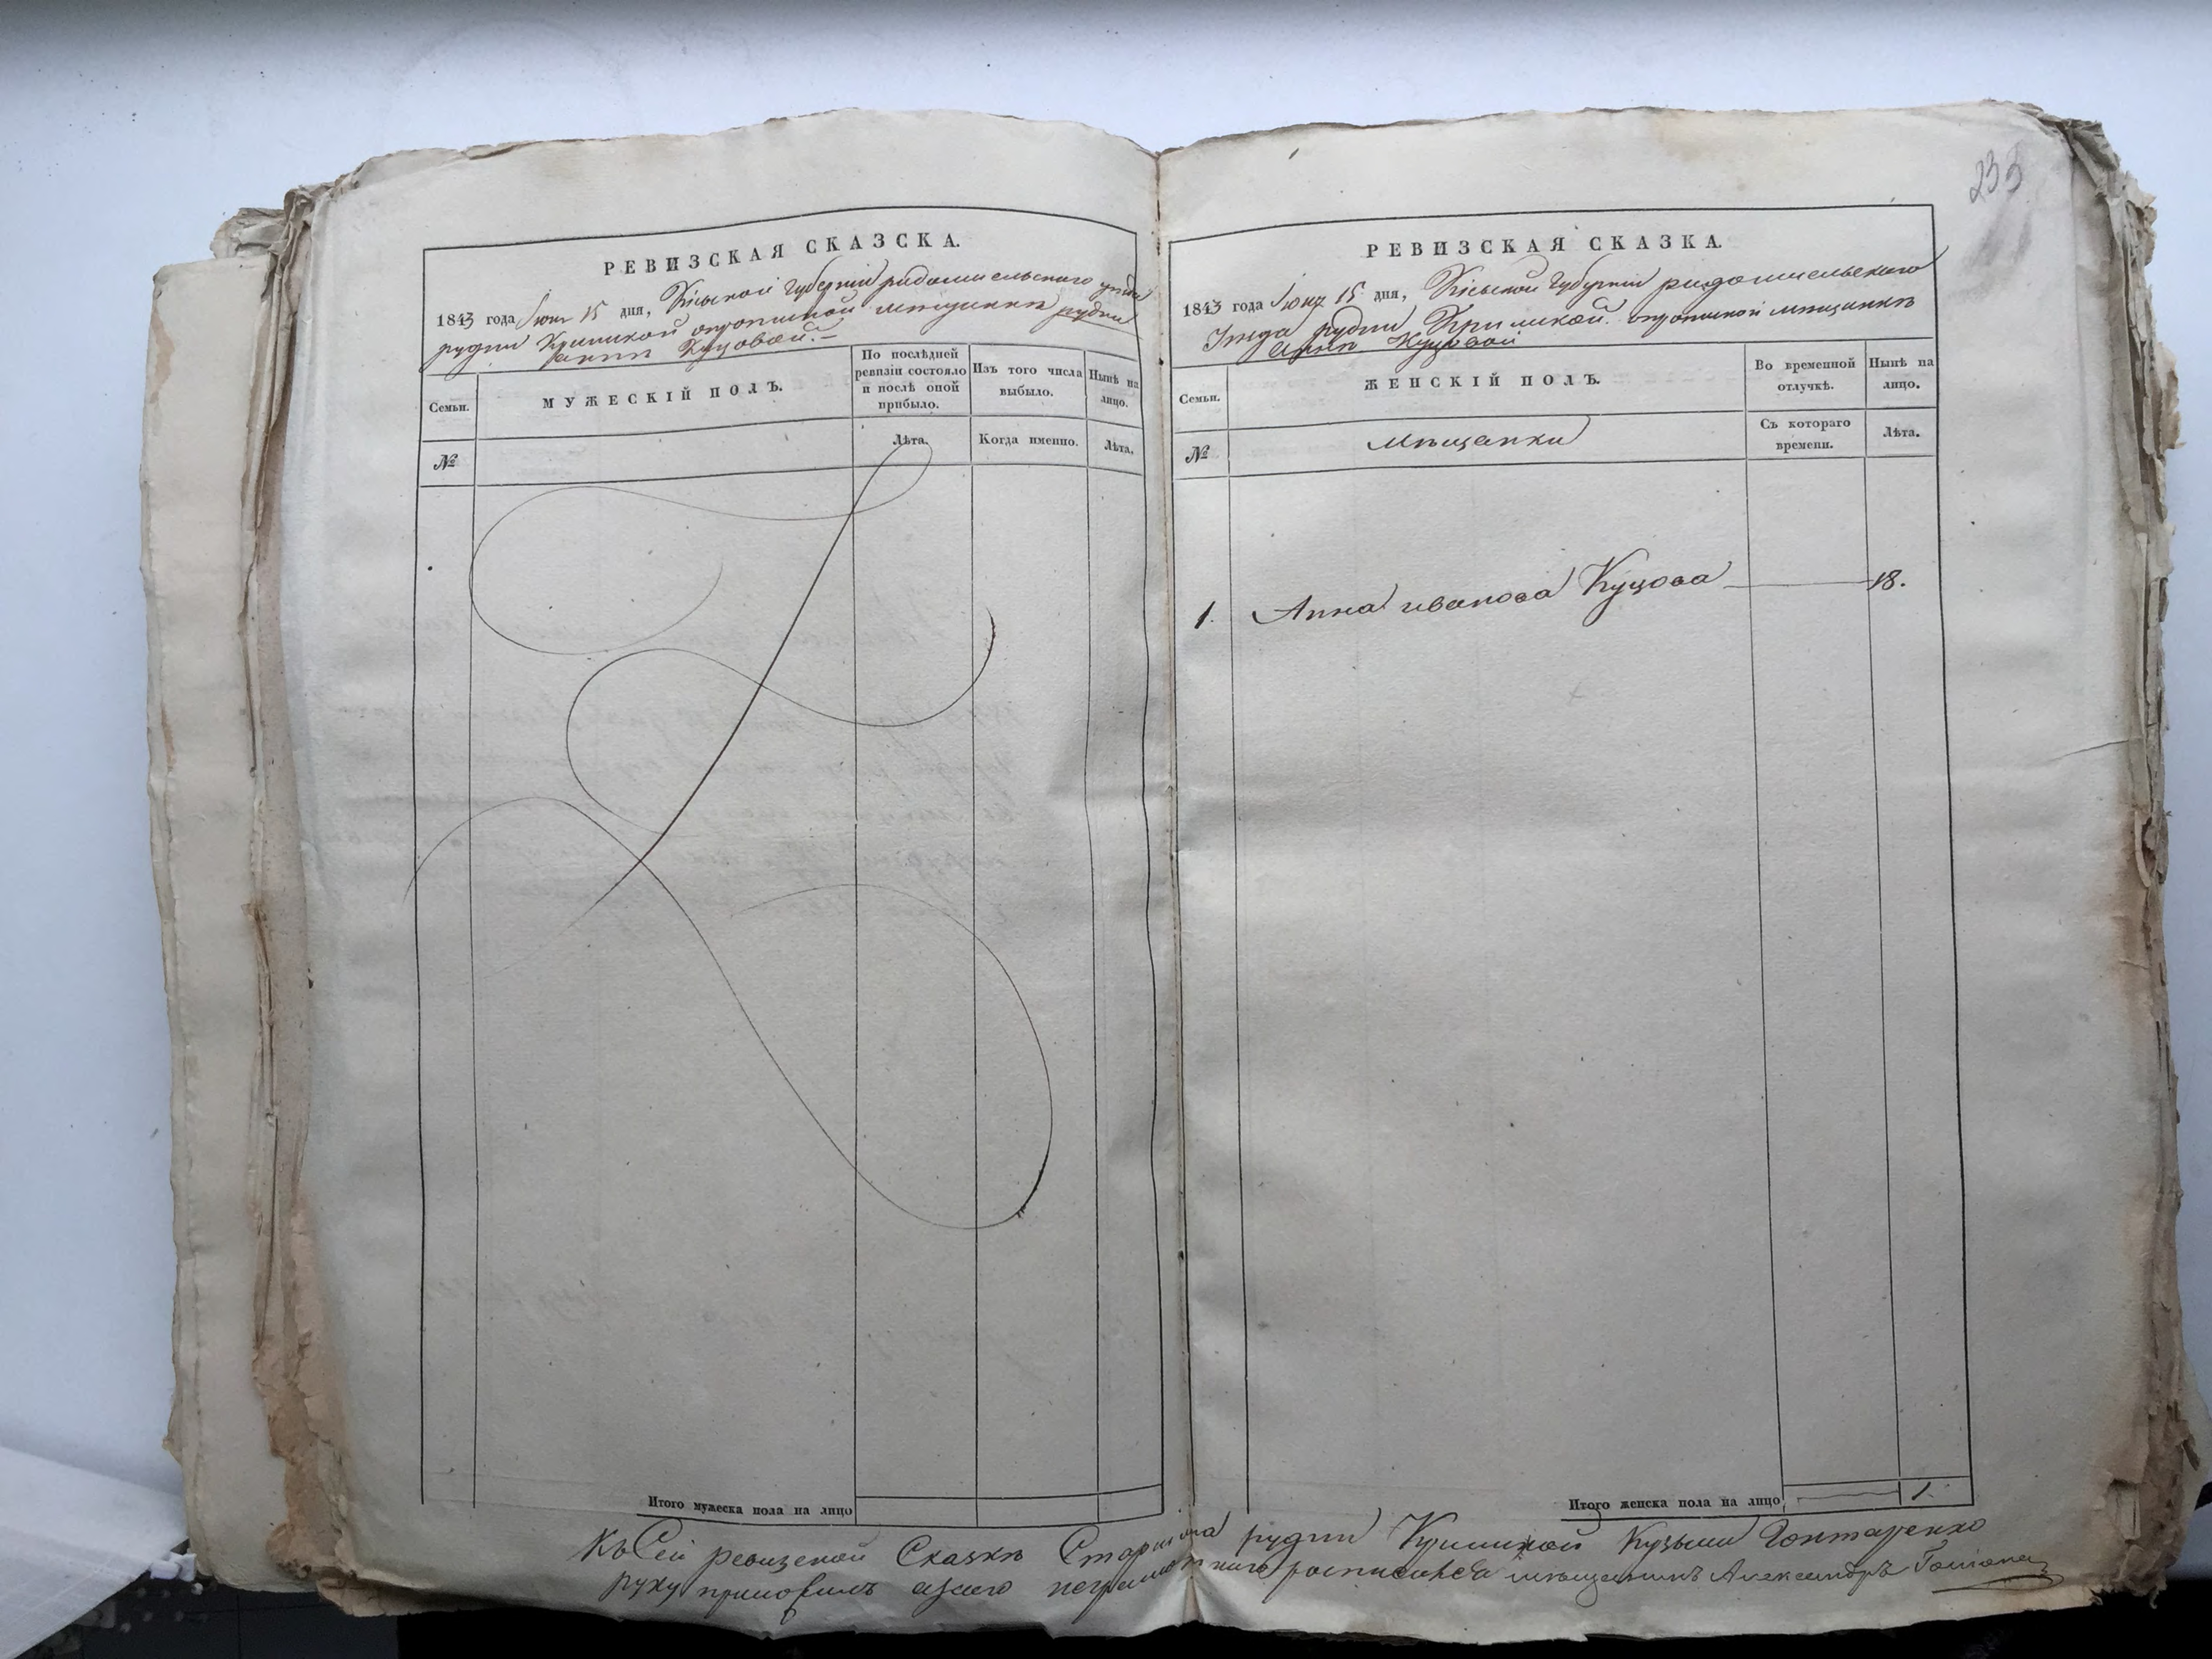 235
РЕВИЗСКАЯ СКАЗСКА.
1843 года Июня 15 дня, Кіевской Губерніи радомысльского уезда
рудни Кримкой мещанки рудни
анни Куцовой. —
Семьи.
МУЖЕСКІЙ ПОЛЪ.
По послѣдней ревизіи состояло и послѣ оной прибыло.
Изъ того числа выбыло.
Нынѣ на лицо.
№
Лѣта.
Когда именно.
Лѣта.
Итого мужеска пола на лицо
РЕВИЗСКАЯ СКАЗКА.
1843 года Июня 15 дня, Кіевской Губерніи радомысльского
уезда рудни мещанки
Анни Куцовой
Семьи.
ЖЕНСКІЙ ПОЛЪ.
Во временной отлучкѣ.
Нынѣ на лицо.
№
Мѣщанки
Съ котораго времени.
Лѣта.
1. Анна иванова Куцова — 18.
Итого женска пола на лицо — 1.
Къ Сей ревизской Сказкѣ Старшина рудни Кузьма Гонтаренко
руку приложилъ а за него неграмотнаго росписался мещанинъ Александръ